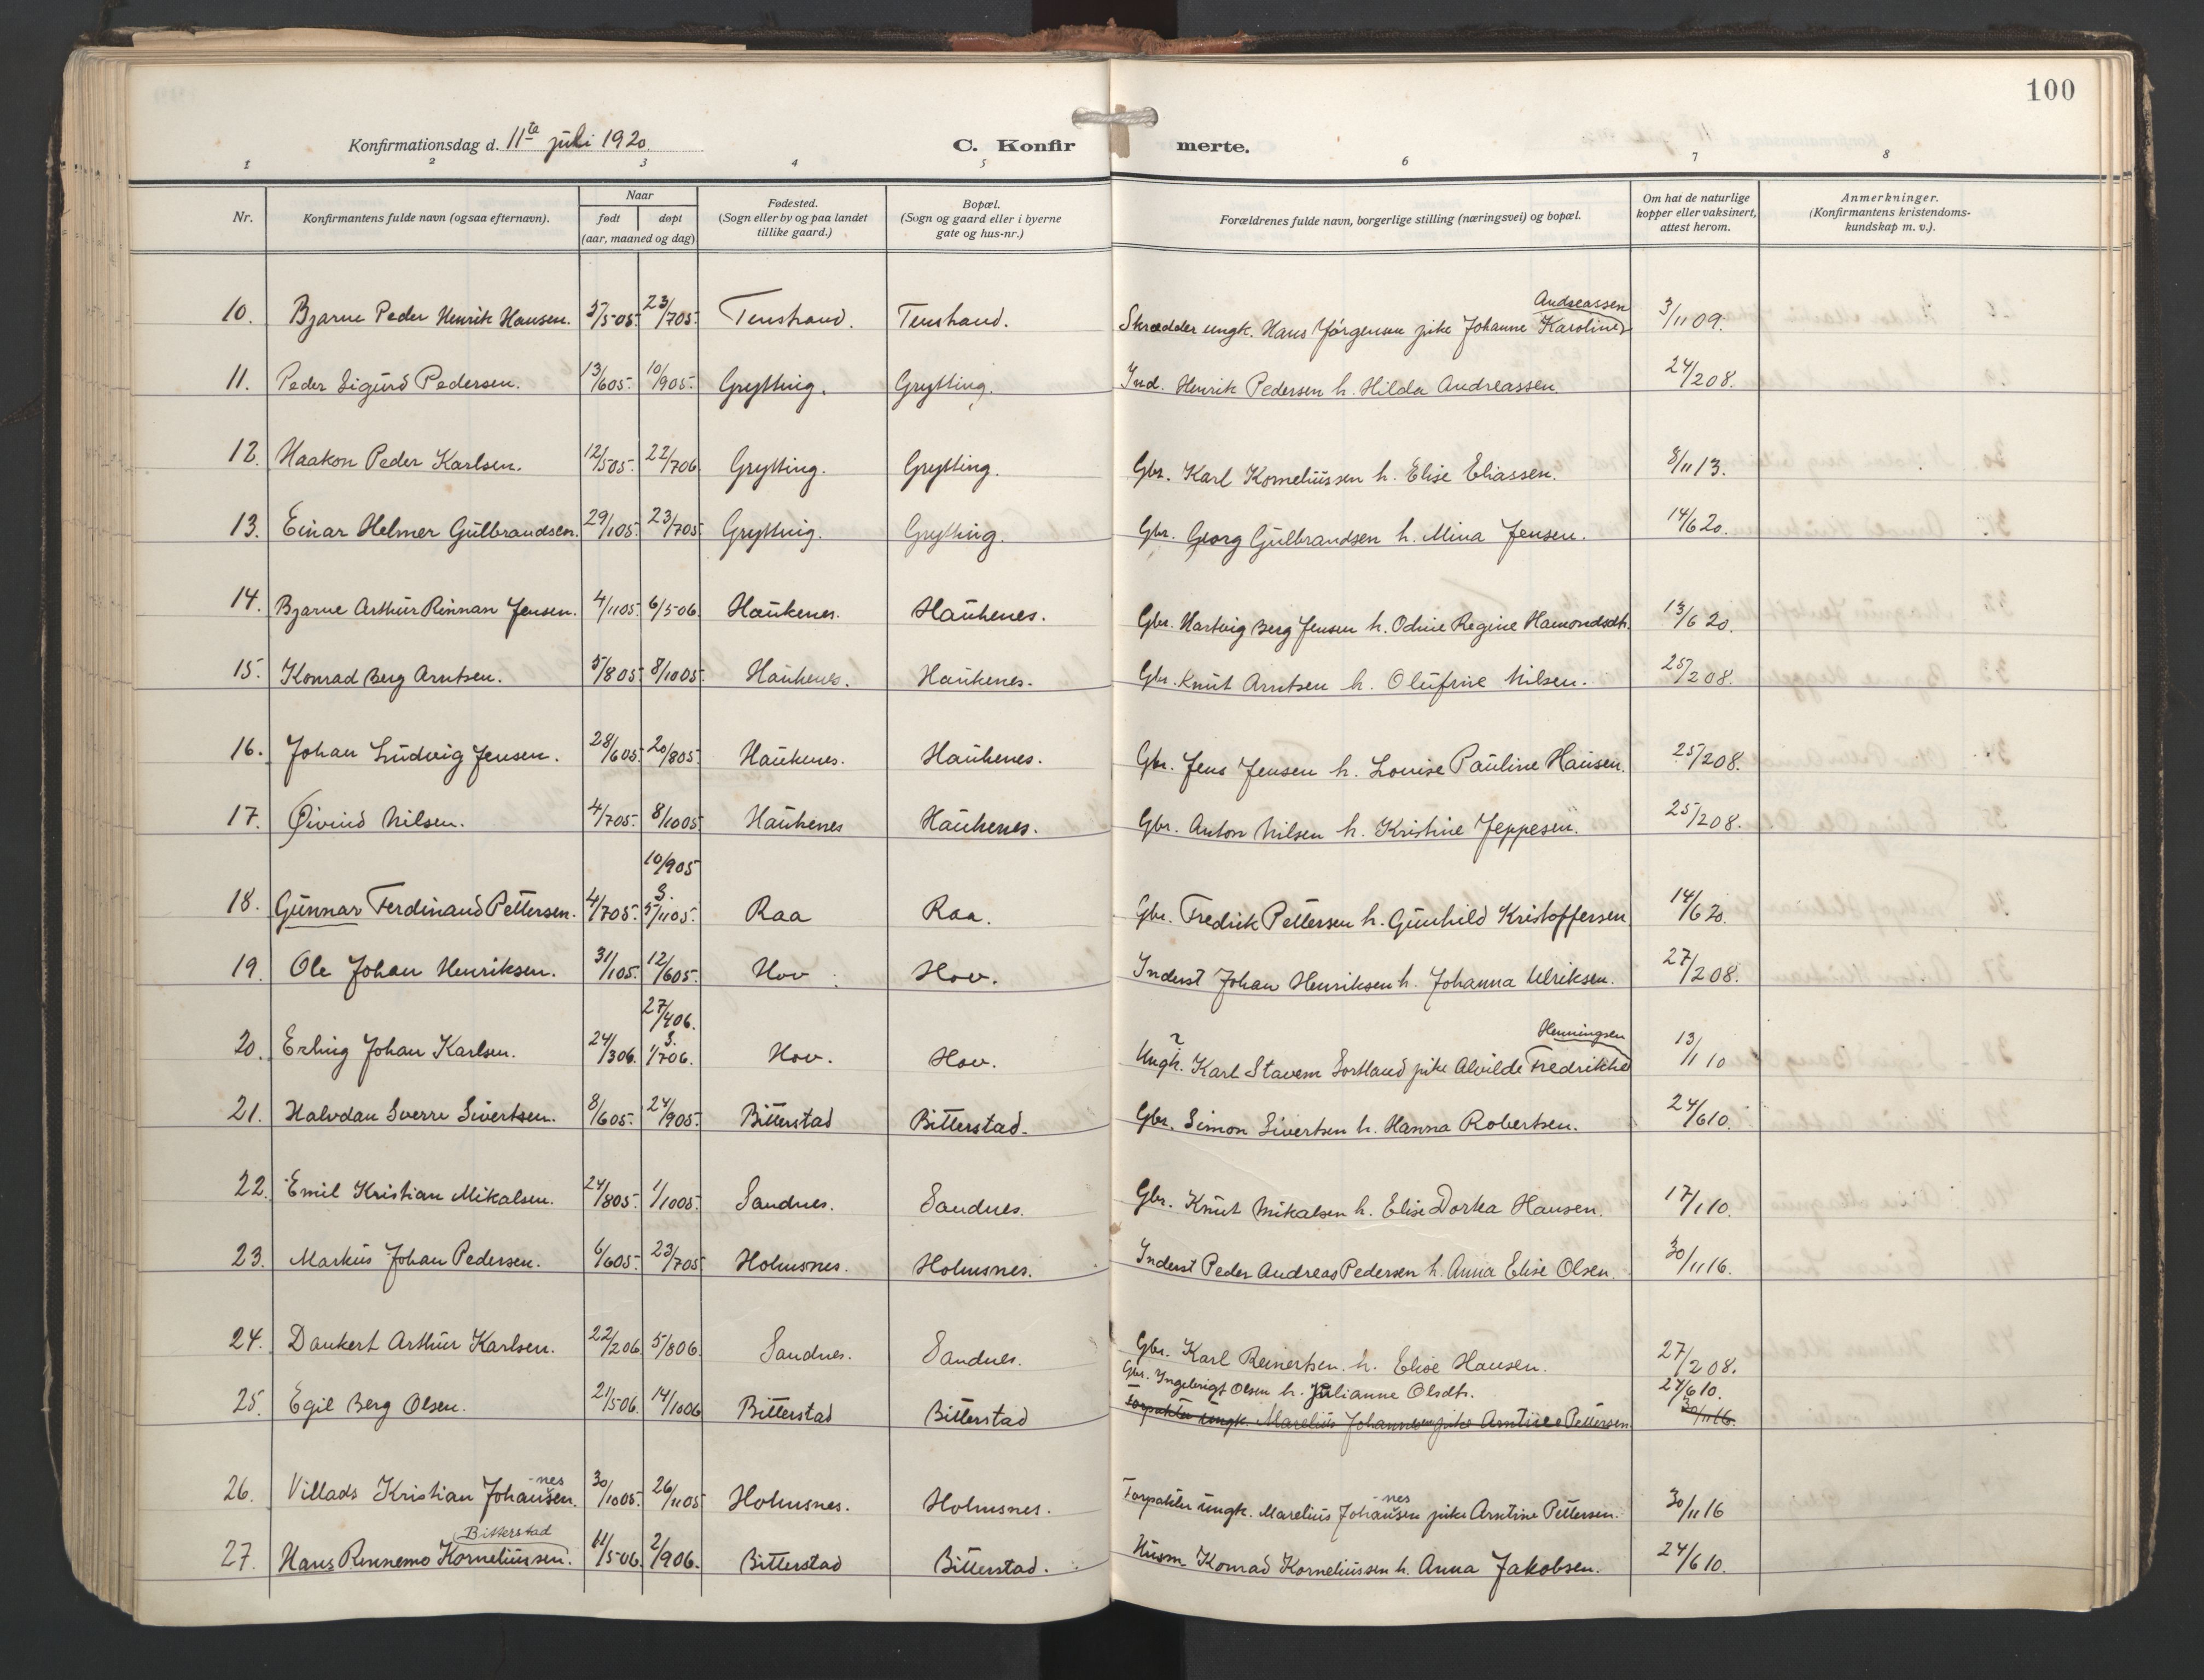 100
Konfirmationsdag d. 11te juli 1920.
C. Konfirmerte.
1 2 3 4 5 6 7 8
Nr. Konfirmantens fulde navn (ogsaa efternavn). Naar født døpt (aar, maaned og dag) Fødested. (Sogn eller by og paa landet tillike gaard.) Bopæl. (Sogn og gaard eller i byerne gate og hus-nr.) Forældrenes fulde navn, borgerlige stilling (næringsvei) og bopæl. Om hat de naturlige kopper eller vaksinert, attest herom. Anmerkninger. (Konfirmantens kristendoms-kundskap m. v.).
Andreassen
10. Bjarne Peder Henrik Hansen. 5/505. 23/705. Tenstrand. Tenstrand. Skrædder ungk. Hans Jørgensen pike Johanne Karoline 3/1109.
11. Peder Sigurd Pedersen. 13/605. 10/905. Grytting. Grytting. Ind. Henrik Pedersen h. Hilda Andreassen. 24/208.
12. Haakon Peder Karlsen. 12/505. 22/706 Grytting. Grytting. Gbr. Karl Korneliussen h. Elise Eliassen. 8/1113.
13. Einar Helmer Gulbrandsen. 29/105. 23/705 Grytting. Grytting. Gbr. Georg Gulbrandsen h. Mina Jensen. 14/620.
14. Bjarne Arthur Rinnan Jensen. 4/1105. 6/506. Haukenes. Haukenes. Gbr. Hartvig Berg Jensen h. Odine Regine Hamondsdtr. 13/620.
15. Konrad Berg Arntsen. 5/805. 8/1005. Haukenes. Haukenes. Gbr. Knut Arntsen h. Olufine Nilsen. 25/208.
16. Johan Ludvig Jensen. 28/605. 20/805. Haukenes. Haukenes. Gbr. Jens Jensen h. Lovise Pauline Hansen. 25/208.
17. Øivind Nilsen. 4/705. 8/1005 Haukenes Haukenes. Gbr. Anton Nilsen h. Kristine Jeppesen. 25/208.
10/905
18. Gunnar Ferdinand Pettersen. 4/705. S. 5/1105. Raa Raa. Gbr. Fredrik Pettersen h. Gunhild Kristoffersen 14/620.
19. Ole Johan Henriksen. 31/105. 12/605. Hov. Hov. Inderst Johan Henriksen h. Johanna Ulriksen. 27/208.
27/406.
Henningsen
20. Erling Johan Karlsen. 24/306. S. 1/706. Hov. Hov. Ungk. ? Karl Stavem Sortland pike Alvilde Fredrikke 13/1110
21. Halvdan Sverre Sivertsen. 8/605. 24/905. Bitterstad Bitterstad. Gbr. Simon Sivertsen h. Hanna Robertsen. 24/610.
22. Emil Kristian Mikalsen. 24/805. 1/1005. Sandnes. Sandnes. Gbr. Knut Mikalsen h. Elise Dortea Hansen. 17/110.
23. Markus Johan Pedersen. 6/605. 23/705 Holmsnes. Holmsnes. Inderst Peder Andreas Pedersen h. Anna Elise Olsen. 30/1116.
24. Dankert Arthur Karlsen. 22/206. 5/806. Sandnes. Sandnes. Gbr. Karl Reinertsen h. Elise Hansen. 27/208.
Gbr. Ingebrigt Olsen h. Julianne Olsdtr. 24/610.
25. Egil Berg Olsen. 21/506. 14/1006 Bitterstad Bitterstad Torpakter ungk. Marelius Johannesen pike Arntine Pettersen. 30/1116.
-nes -nes
26. Villads Kristian Johansen. 30/1005. 26/1105 Holmsnes. Holmsnes. Torpakter ungk. Marelius Johansen pike Arntine Pettersen. 30/1116
Bitterstad
27. Hans Rennemo Korneliussen. 11/506. 2/906. Bitterstad Bitterstad. Husm. Konrad Korneliussen h. Anna Jakobsen. 24/610.